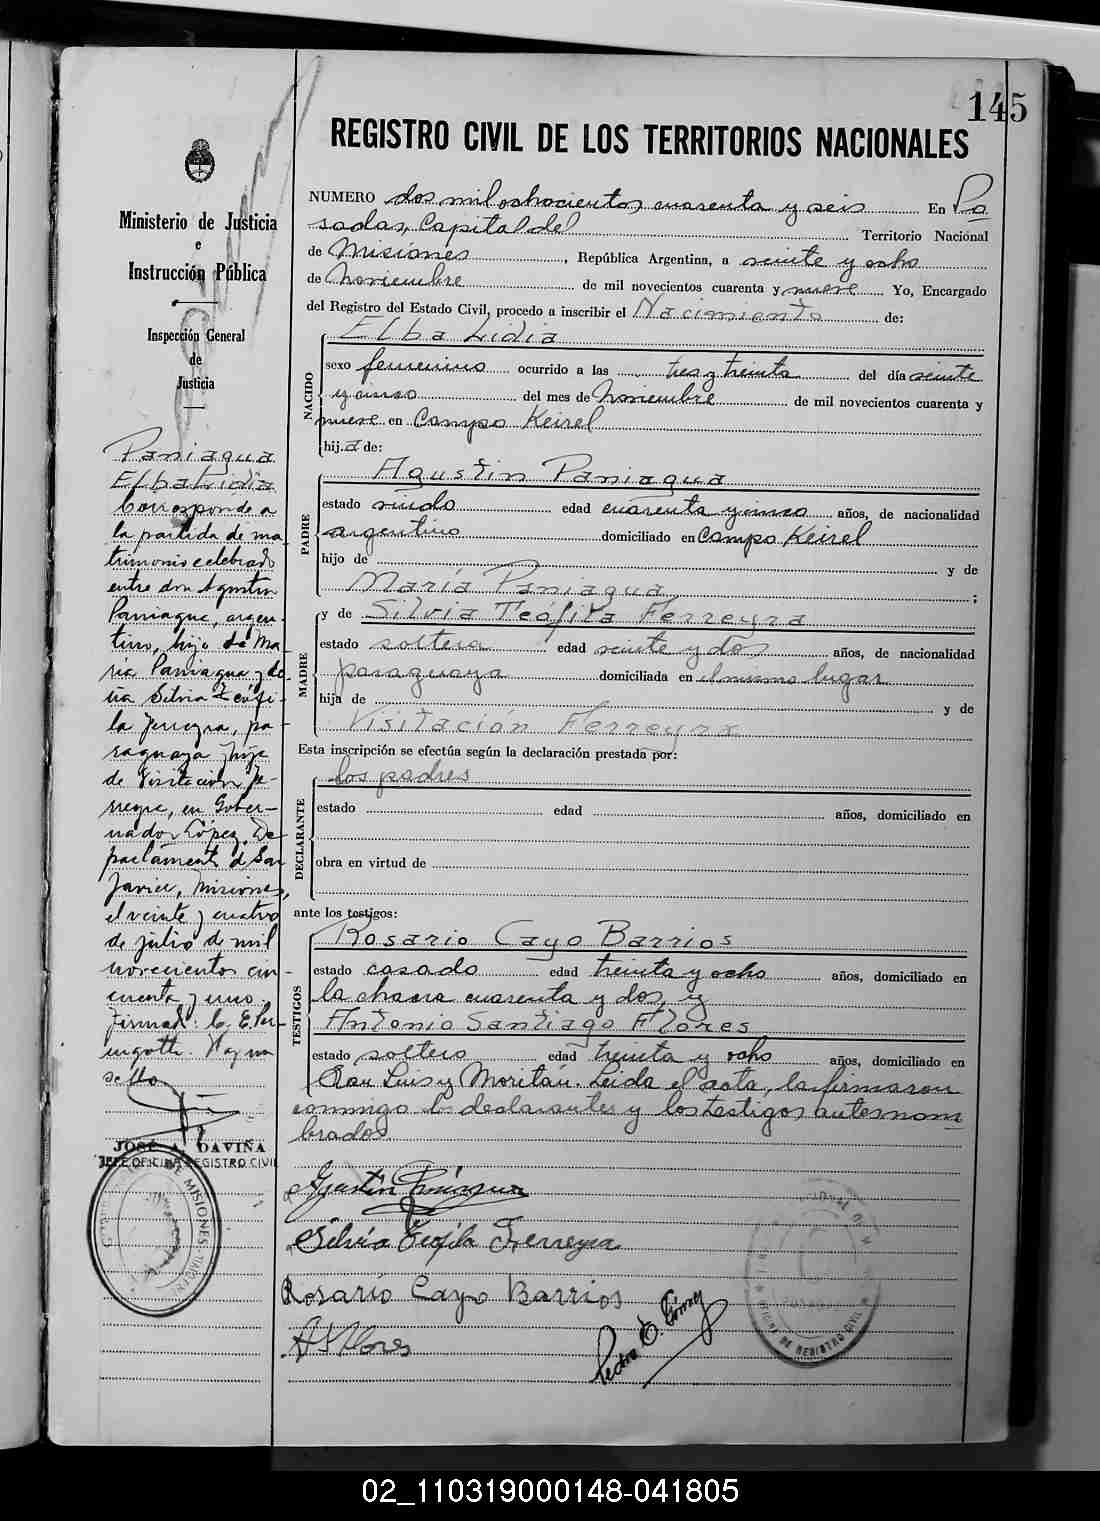 145
REGISTRO CIVIL DE LOS TERRITORIOS NACIONALES
Ministerio de Justicia
e
Instrucción Pública
Inspección General
de
Justicia
Paniagua
Elba Lidia
Corresponde a
la partida de ma
trimonio celebrado
entre don Agustin
Paniagua, argen-
tino, hijo de Ma
ria Paniagua y do
ña Silvia Teófi-
la Ferreyra, pa-
raguaya hija
de Visitacion Fe-
rreyra, en Gober-
nador López, De
partamento d San
Javier, Misiones,
el veinte y cuatro
de julio de mil
novecientos cin-
cuenta y uno.
Firmado: E. Per-
ingotti. Hay un
sello
JOSE A. DAVIÑA
JEFE OFICINA REGISTRO CIVIL
DE MISIONES
NUMERO dos mil ochocientos cuarenta y seis En Po
sadas, Capital del Territorio Nacional
de Misiones, República Argentina, a veinte y ocho
de Noviembre de mil novecientos cuarenta y nueve Yo, Encargado
del Registro del Estado Civil, procedo a inscribir el Nacimiento de:
NACIDO
Elba Lidia
sexo femenino ocurrido a las tres y treinta del día veinte
y cinco del mes de Noviembre de mil novecientos cuarenta y
nueve en Campo Keirel
hija de:
PADRE
Agustin Paniagua
estado viudo edad cuarenta y cinco años, de nacionalidad
argentino domiciliado en Campo Keirel
hijo de y de
María Paniagua;
MADRE
y de Silvia Teófila Ferreyra
estado soltera edad veinte y dos años, de nacionalidad
paraguaya domiciliada en el mismo lugar
hija de y de
Visitación Ferreyra
Esta inscripción se efectúa según la declaración prestada por:
DECLARANTE
los padres
estado edad años, domiciliado en
obra en virtud de
ante los testigos:
TESTIGOS
Rosario Cayo Barrios
estado casado edad treinta y ocho años, domiciliado en
la chacra cuarenta y dos, y
Antonio Santiago Flores
estado soltero edad treinta y ocho años, domiciliado en
San Luis y Moritán. Leida el acta, la firmaron
conmigo los declarantes y los testigos antes nom
brados
Agustin Paniagua
Silvia Teofila Ferreyra
Rosario Cayo Barrios
A S Flores
Pedro E. Gómez
OFICINA DE REGISTRO CIVIL
02_110319000148-041805